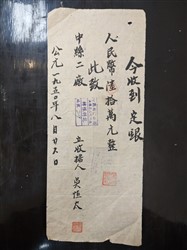 今收到 定銀
人民幣陸拾萬元整
此致
中絲二廠
立收據人 吳
公元一九五〇年八月廿六日